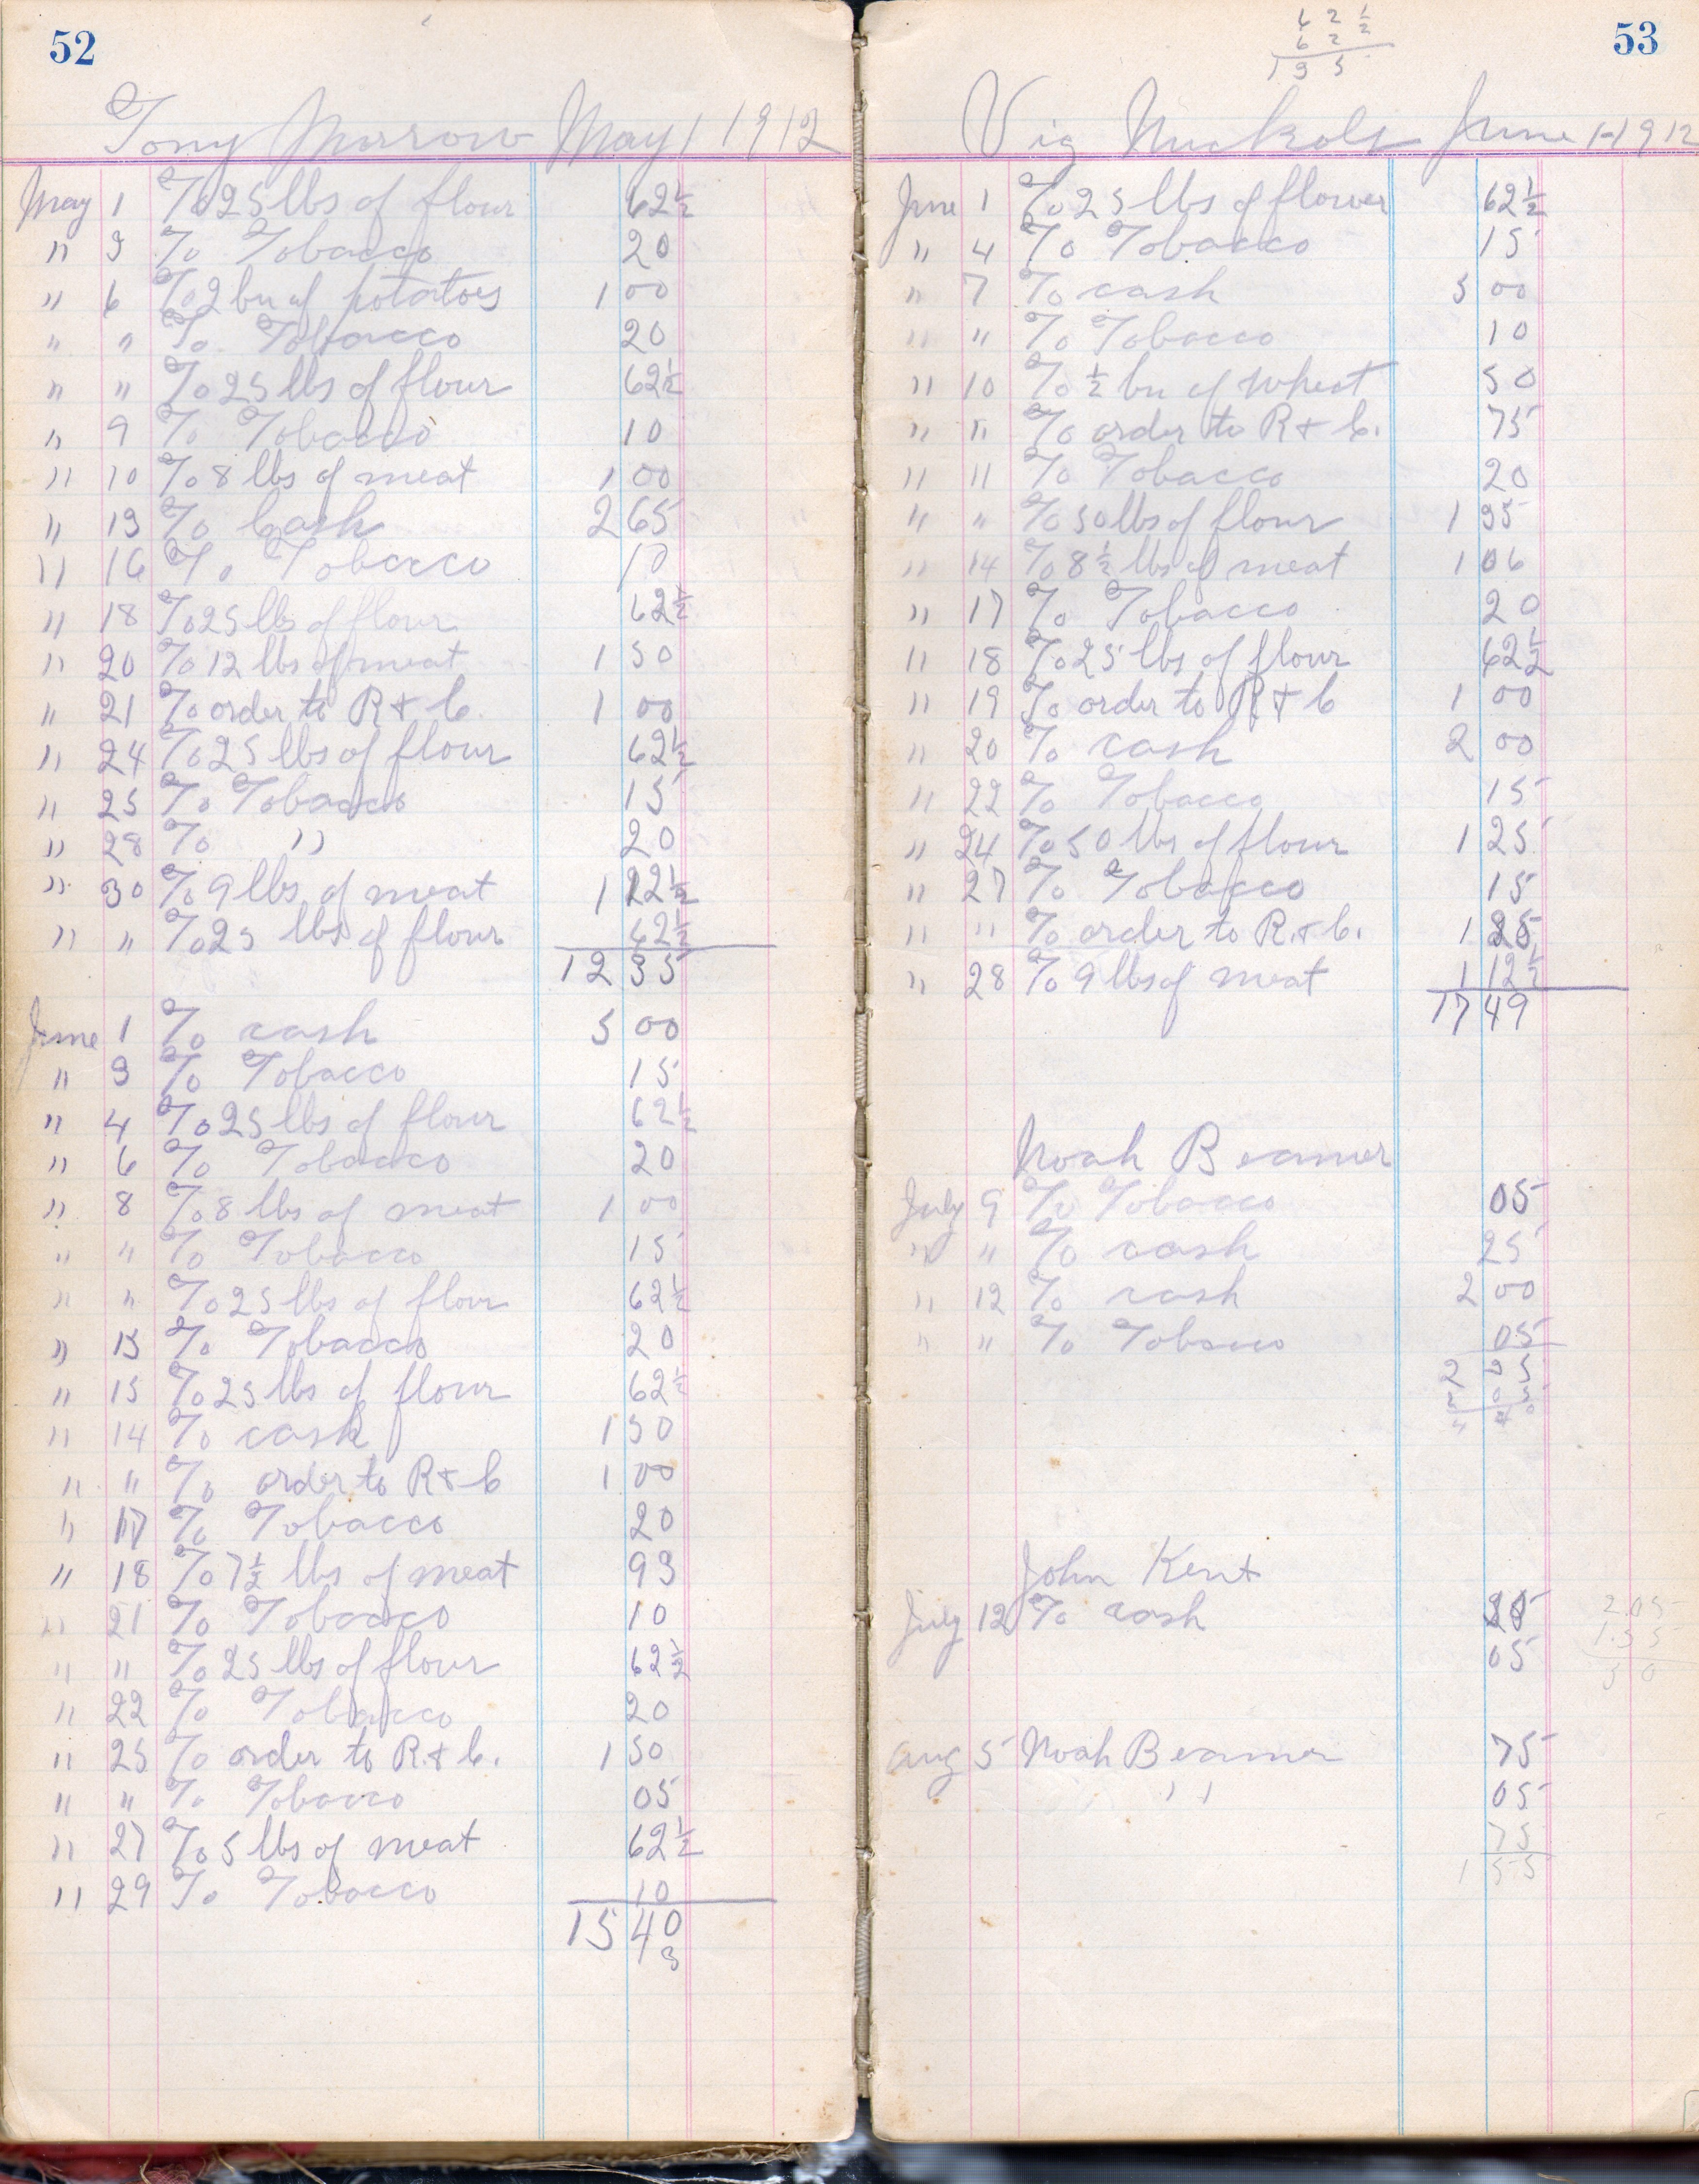 52
Tony Morrow May 1 1912
May 1 To 25 lbs of flour 62½
" 3 To Tobacco 20
" 6 To 2 bu of potatoes 1 00
" " To Tobacco 20
" " To 25 lbs of flour 62½
" 9 To Tobacco 10
" 10 To 8 lbs of meat 1 00
" 13 To Cash 2 65
" 16 To Tobacco 10
" 18 To 25 lbs of flour 62½
" 20 To 12 lbs of meat 1 50
" 21 To order to R & C. 1 00
" 24 To 25 lbs of flour 62½
" 25 To Tobacco 15
" 28 To " 20
" 30 To 9 lbs of meat 1 12½
" " To 25 lbs of flour 62½
12 35
June 1 To cash 5 00
" 3 To Tobacco 15
" 4 To 25 lbs of flour 62½
" 6 To Tobacco 20
" 8 To 8 lbs of meat 1 00
" " To Tobacco 15
" " To 25 lbs of flour 62½
" 13 To Tobacco 20
" 15 To 25 lbs of flour 62½
" 14 To cash 1 50
" " To order to R & C 1 00
" 17 To Tobacco 20
" 18 To 7½ lbs of meat 93
" 21 To Tobacco 10
" " To 25 lbs of flour 62½
" 22 To Tobacco 20
" 25 To order to R & C. 1 50
" " To Tobacco 05
" 27 To 5 lbs of meat 62½
" 29 To Tobacco 10
15 40
3
53
62½
62
135
Vig Nuckols June 1-1912
June 1 To 25 lbs of flower 62½
" 4 To Tobacco 15
" 7 To cash 5 00
" " To Tobacco 10
" 10 To ½ bu of wheat 50
" " To order to R & C. 75
" 11 To Tobacco 20
" " To 50 lbs of flour 1 35
" 14 To 8½ lbs of meat 1 06
" 17 To Tobacco 20
" 18 To 25 lbs of flour 62½
" 19 To order to R & C 1 00
" 20 To cash 2 00
" 22 To Tobacco 15
" 24 To 50 lbs of flour 1 25
" 27 To Tobacco 15
" " To order to R. & C. 1 25
" 28 To 9 lbs of meat 1 12½
17 49
Noah Beamer
July 9 To Tobacco 05
" " To cash 25
" 12 To cash 2 00
" " To Tobacco 05
2 35
John Kent
July 12 To cash
05
2.05
1.35
Aug 5 Noah Beamer 75
" 05
75
1 55